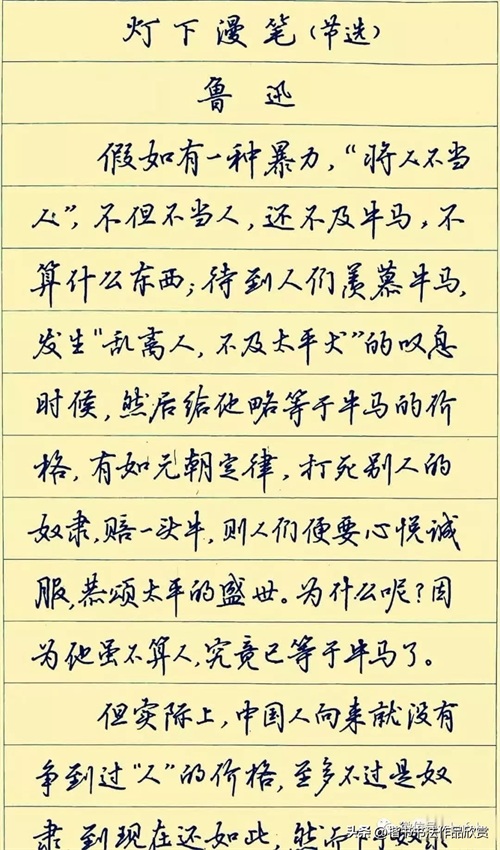 灯下漫笔(节选)
鲁迅
假如有一种暴力,“将人不当
人”,不但不当人,还不及牛马,不
算什么东西;待到人们羡慕牛马,
发生“乱离人,不及太平犬”的叹息
时候,然后给他略等于牛马的价
格,有如元朝定律,打死别人的
奴隶,赔一头牛,则人们便要心悦诚
服,恭颂太平的盛世。为什么呢?因
为他虽不算人,究竟已等于牛马了。
但实际上,中国人向来就没有
争到过“人”的价格,至多不过是奴
隶 到现在还如此,然而
头条
书法作品欣赏